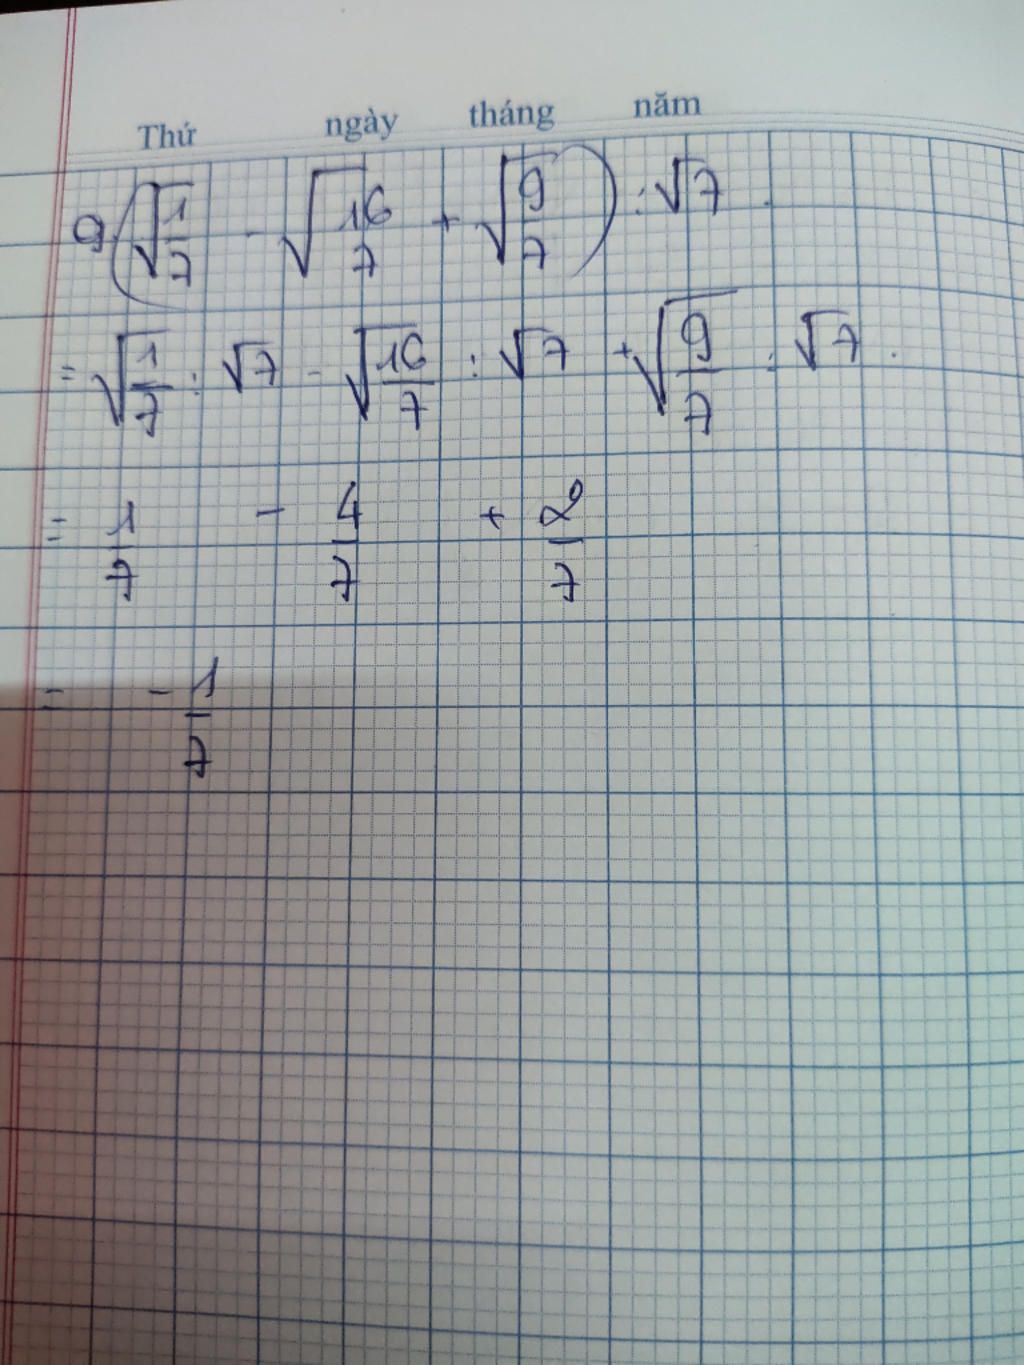 Thứ ngày tháng năm
9 (√(1/7) - √(16/7) + √(9/7)) : √7 .
= √(1/7) : √7 - √(16/7) : √7 + √(9/7) : √7 .
= 1/7 - 4/7 + 2/7
= - 1/7